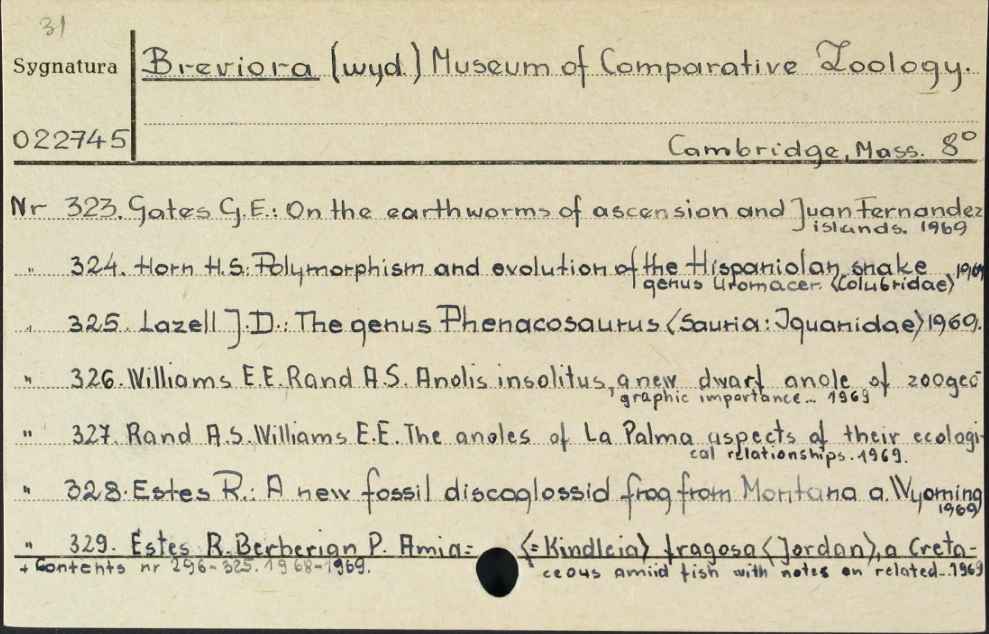 31
Sygnatura
Breviora (wyd.) Museum of Comparative Zoology.
022745
Cambridge, Mass. 8°
Nr 323. Gates G.E.: On the earthworms of ascension and Juan Fernandez
islands. 1969
" 324. Horn H.S.: Polymorphism and evolution of the Hispaniolan snake
genus Uromacer <Colubridae> 1969
" 325. Lazell J.D.: The genus Phenacosaurus <Sauria: Iguanidae> 1969.
" 326. Williams E.E. Rand A.S. Anolis insolitus, a new dwarf anole of zoogeo
graphic importance... 1969
" 327. Rand A.S. Williams E.E. The anoles of La Palma aspects of their ecologi-
cal relationships. 1969.
" 328. Estes R.: A new fossil discoglossid frog from Montana a. Wyoming
1969
" 329. Estes R. Berberian P. Amia= <=Kindleia> fragosa <Jordan>, a Creta-
ceous amiid fish with notes on related...1969
+ Contents nr 296-325. 1968-1969.